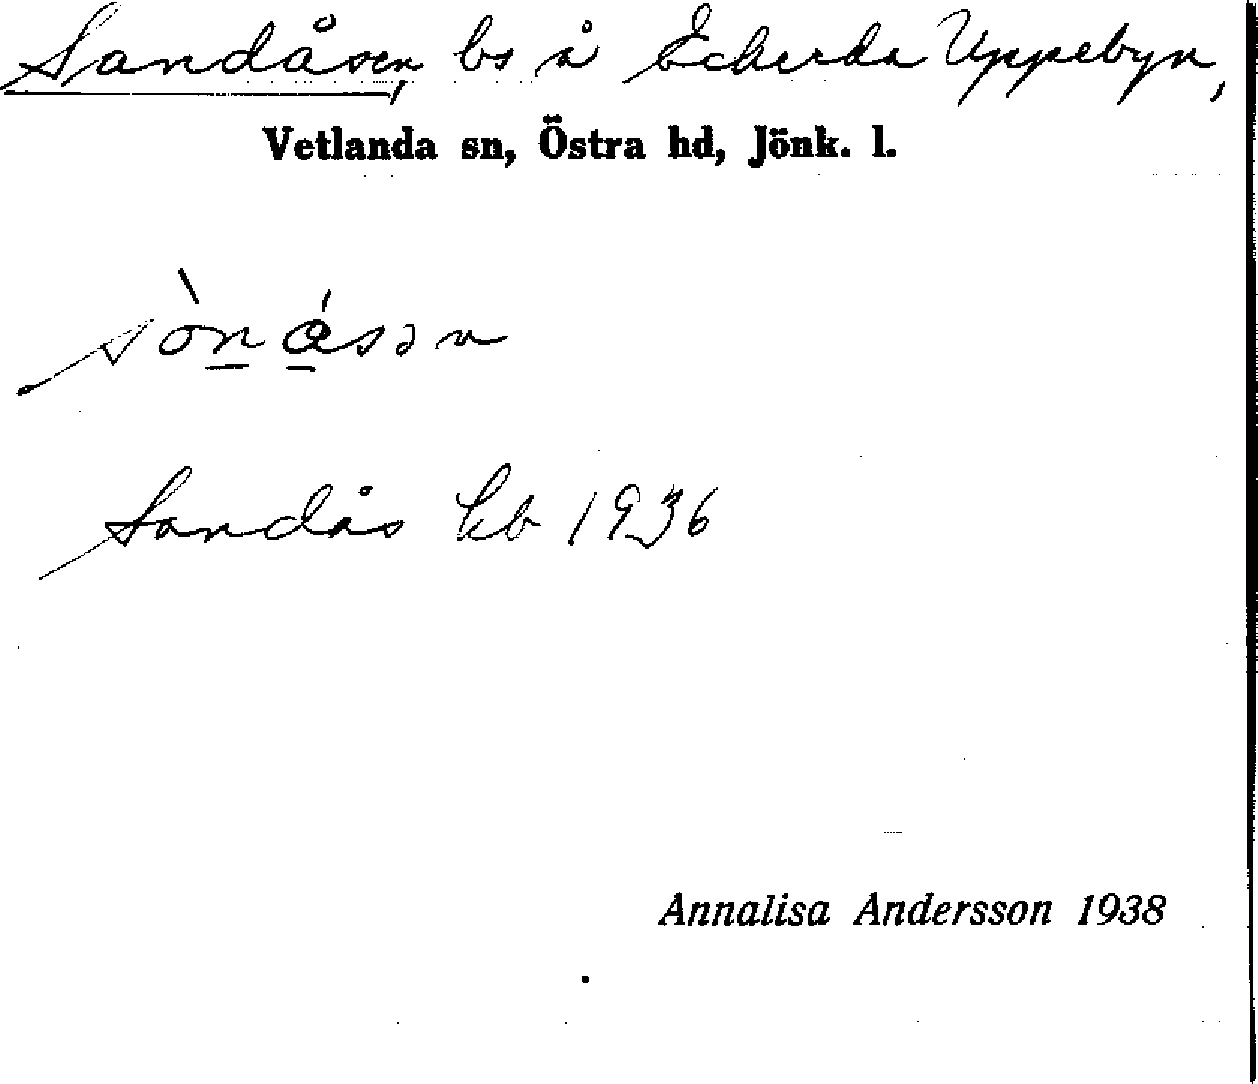 Sandåsen, bs å Eckerda Uppebyn,
Vetlanda sn, Östra hd, Jönk. l.
Sandås kb 1936
Annalisa Andersson 1938